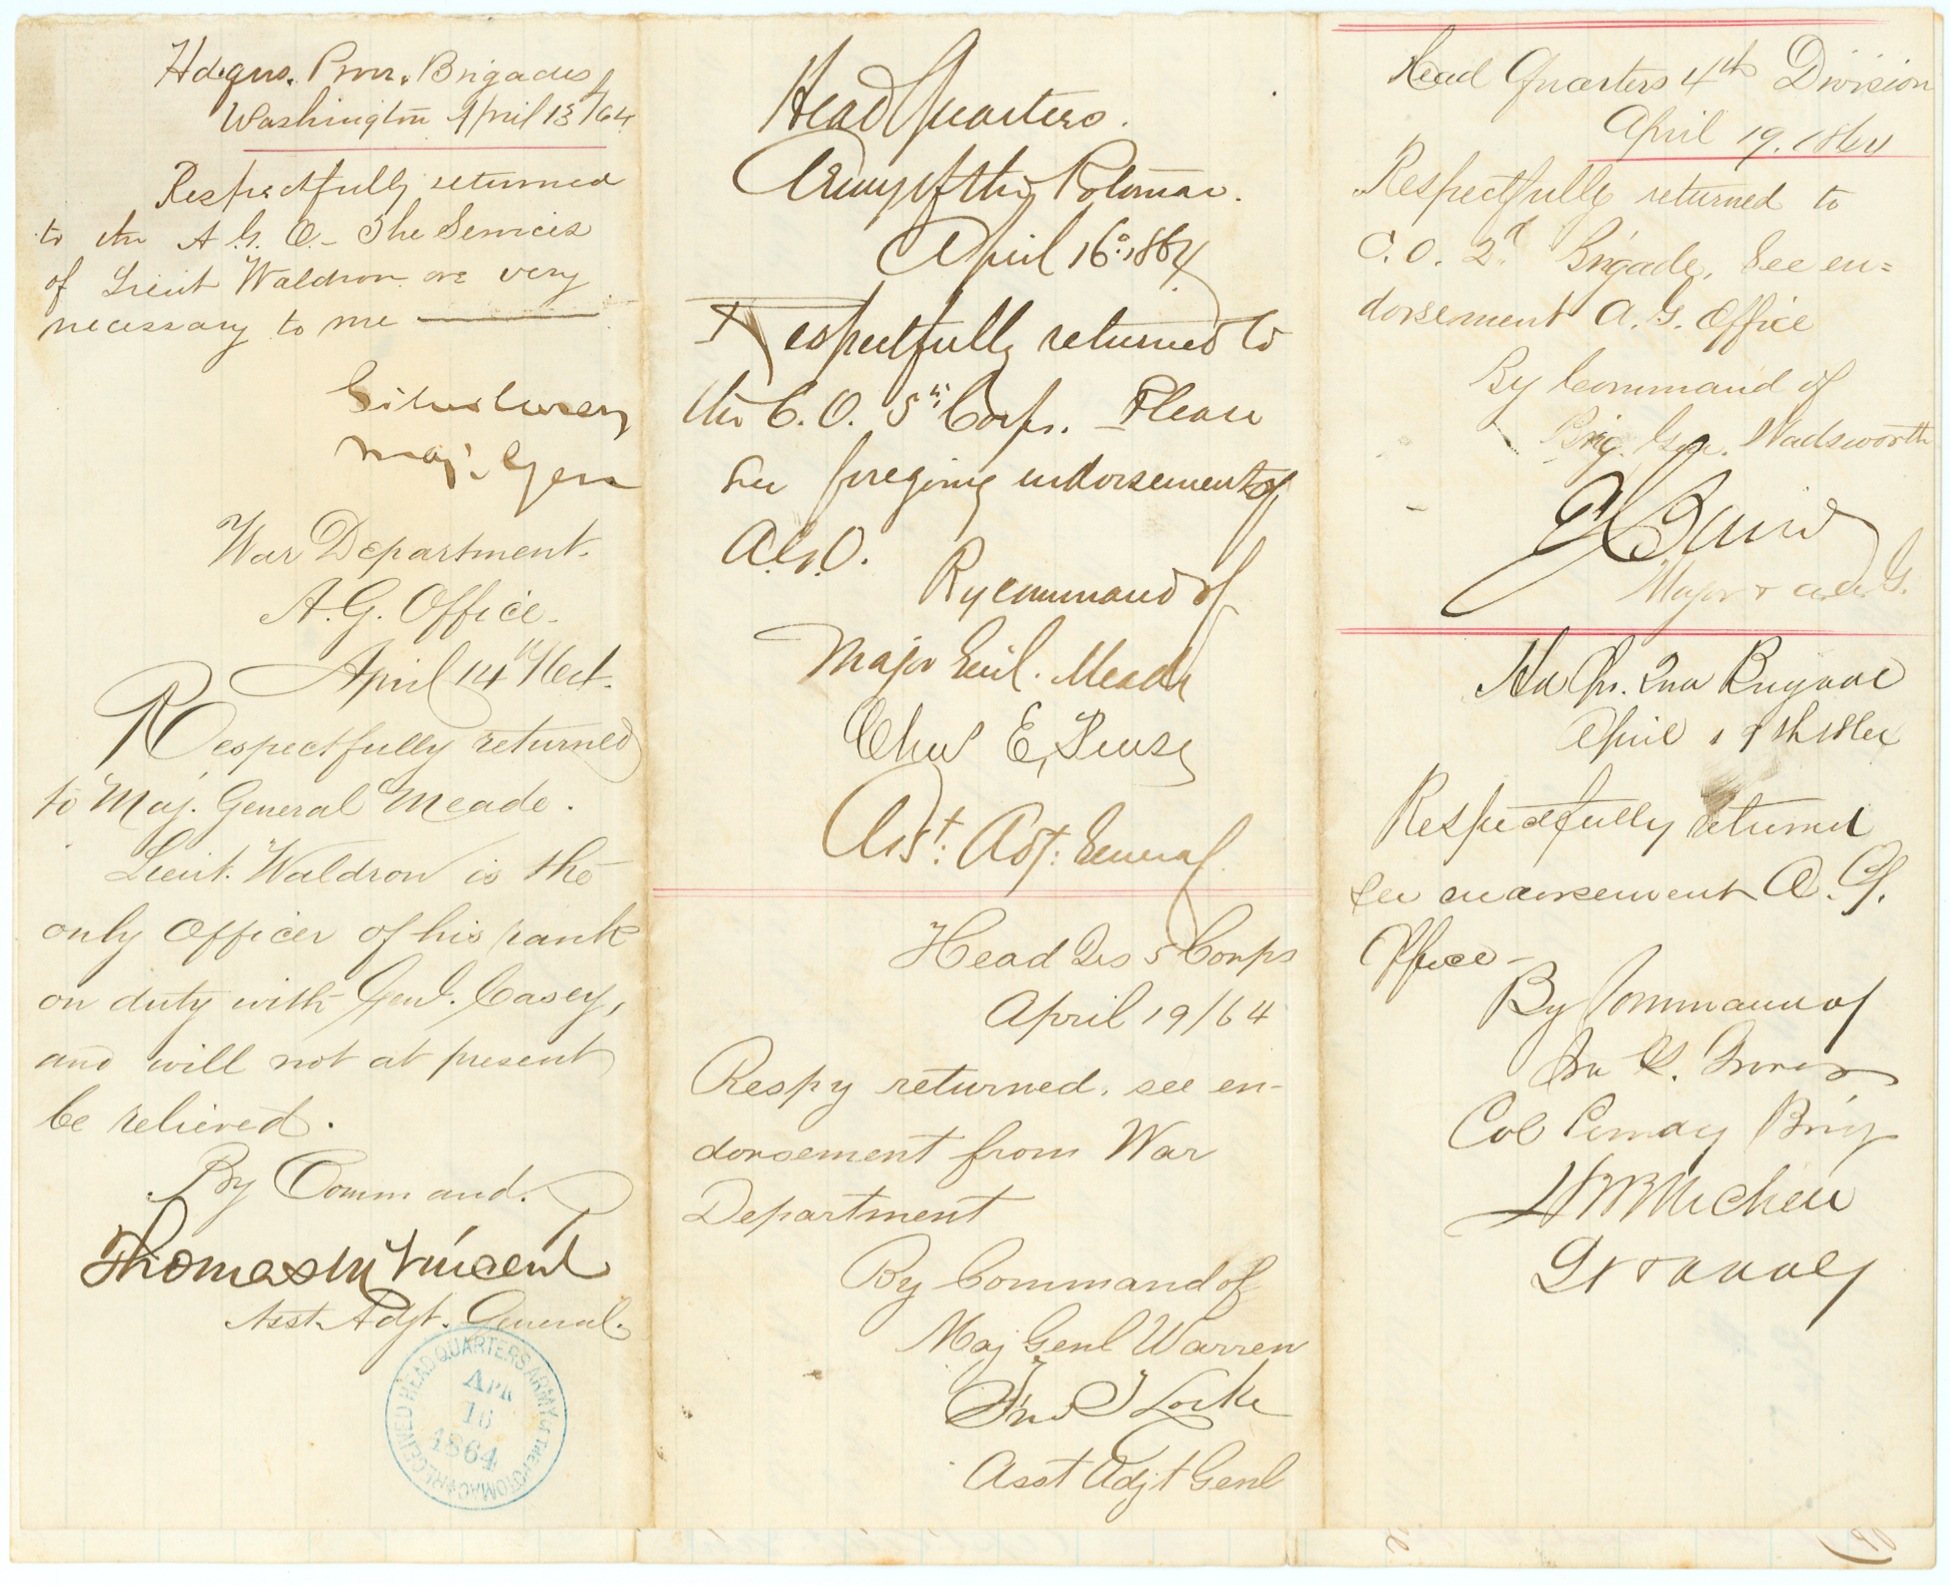 Hdqrs. Prov. Brigades
Washington April 13/64
Respectfully returned
to the A.G.O. – The Services
of Lieut Waldron are very
necessary to me
Silas Casey
Maj. Gen
War Department.
A.G. Office.
April 14th 1864.
Respectfully returned
to Maj. General Meade.
Lieut. Waldron is the
only Officer of his rank
on duty with Genl. Casey,
and will not at present
be relieved.
By Command.
Thomas M Vincent
Asst. Adjt. General.
RECEIVED HEAD QUARTERS ARMY OF THE POTOMAC
APR
16
1864
Head Quarters.
Army of the Potomac.
April 16th 1864
Respectfully returned to
the C.O. 5th Corps. Please
see foregoing endorsement of
A.G.O.
By command of
Major Genl. Meade
Chas E. Pease
Asst. Adjt. General
Head Qrs 5 Corps
April 19/64
Respy returned. see en-
dorsement from War
Department
By Command of
Maj Genl Warren
Fred T Locke
Asst Adjt Genl
Head Quarters 4th Division
April 19. 1864
Respectfully returned to
C.O. 2d Brigade. See en=
dorsement A.G. Office
By Command of
Brig. Gen. Wadsworth
Major & A.A.G.
Hd Qrs. 2nd Brigade
April 19th 1864
Respectfully returned
see endorsement A.G.
Office –
By Command of
Col Comdg Brig